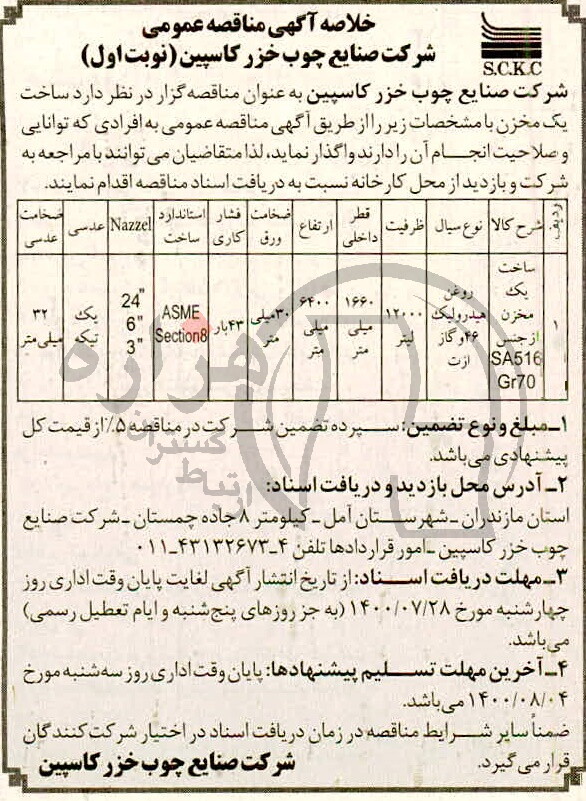 خلاصه آگهی مناقصه عمومی
شرکت صنایع چوب خزر کاسپین (نوبت اول)
S.C.K.C
شرکت صنایع چوب خزر کاسپین به عنوان مناقصه گزار در نظر دارد ساخت
یک مخزن با مشخصات زیر را از طریق آگهی مناقصه عمومی به افرادی که توانایی
و صلاحیت انجام آن را دارند واگذار نماید، لذا متقاضیان می توانند با مراجعه به
شرکت و بازدید از محل کارخانه نسبت به دریافت اسناد مناقصه اقدام نمایند.
ردیف شرح کالا نوع سیال ظرفیت قطر داخلی ارتفاع ضخامت ورق فشار کاری استاندارد ساخت Nazzel عدسی ضخامت عدسی
۱ ساخت یک مخزن از جنس SA516 Gr70 روغن هیدرولیک ۴۶ و گاز ازت ۱۲۰۰۰ لیتر ۱۶۶۰ میلی متر ۶۴۰۰ میلی متر ۳۰ میلی متر ۴۳ بار ASME Section8 24" 6" 3" یک تیکه ۳۲ میلی متر
۱ـ مبلغ و نوع تضمین: سپرده تضمین شرکت در مناقصه ۵٪ از قیمت کل
پیشنهادی می باشد.
۲ـ آدرس محل بازدید و دریافت اسناد:
استان مازندران ـ شهرستان آمل ـ کیلومتر ۸ جاده چمستان ـ شرکت صنایع
چوب خزر کاسپین ـ امور قراردادها تلفن ۴ـ۴۳۱۳۲۶۷۳ـ۰۱۱
۳ـ مهلت دریافت اسناد: از تاریخ انتشار آگهی لغایت پایان وقت اداری روز
چهارشنبه مورخ ۱۴۰۰/۰۷/۲۸ (به جز روزهای پنج شنبه و ایام تعطیل رسمی)
می باشد.
۴ـ آخرین مهلت تسلیم پیشنهادها: پایان وقت اداری روز سه شنبه مورخ
۱۴۰۰/۰۸/۰۴ می باشد.
ضمناً سایر شرایط مناقصه در زمان دریافت اسناد در اختیار شرکت کنندگان
قرار می گیرد.
شرکت صنایع چوب خزر کاسپین
هزاره
گستران
ارتباط